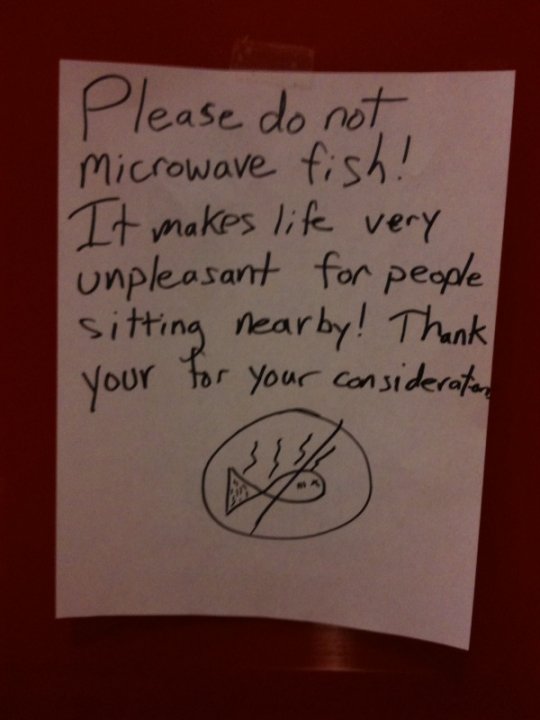 Please do not
microwave fish!
It makes life very
unpleasant for people
sitting nearby! Thank
your for your consideration